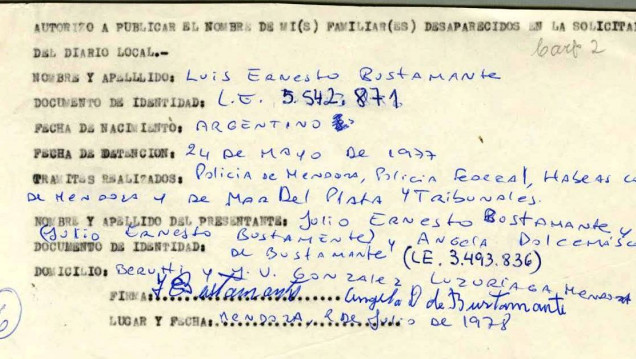 AUTORIZO A PUBLICAR EL NOMBRE DE MI(S) FAMILIAR(ES) DESAPARECIDOS EN LA SOLICITA
DEL DIARIO LOCAL.-
Cart 2
NOMBRE Y APELLLIDO: LUIS ERNESTO BUSTAMANTE
DOCUMENTO DE IDENTIDAD: L.E. 5.542.871
FECHA DE NACIMIENTO: ARGENTINO
FECHA DE DETENCION: 24 DE MAYO DE 1977
TRAMITES REALIZADOS: Policia de Mendoza, Policia Federal, Habeas
DE MENDOZA y DE MAR DEL PLATA Y TRIBUNALES.
NOMBRE Y APELLIDO DEL PRESENTANTE: Julio ERNESTO BUSTAMANTE y
(JULIO ERNESTO BUSTAMENTE) y ANGELA
DOCUMENTO DE IDENTIDAD: DE BUSTAMANTE (LE. 3.493.836)
DOMICILIO: BERUTTI y J.V. GONZALEZ LUZURIAGA, MENDOZA
FIRMA: Bustamante Angela D de Bustamante
LUGAR Y FECHA: MENDOZA, 2 de Julio DE 1978